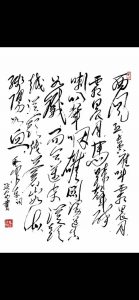 西风烈长空雁叫霜晨月
霜晨月马蹄声碎
喇叭声咽雄关漫道真
如铁而今迈步从头
越从头越苍山如海
残阳如血